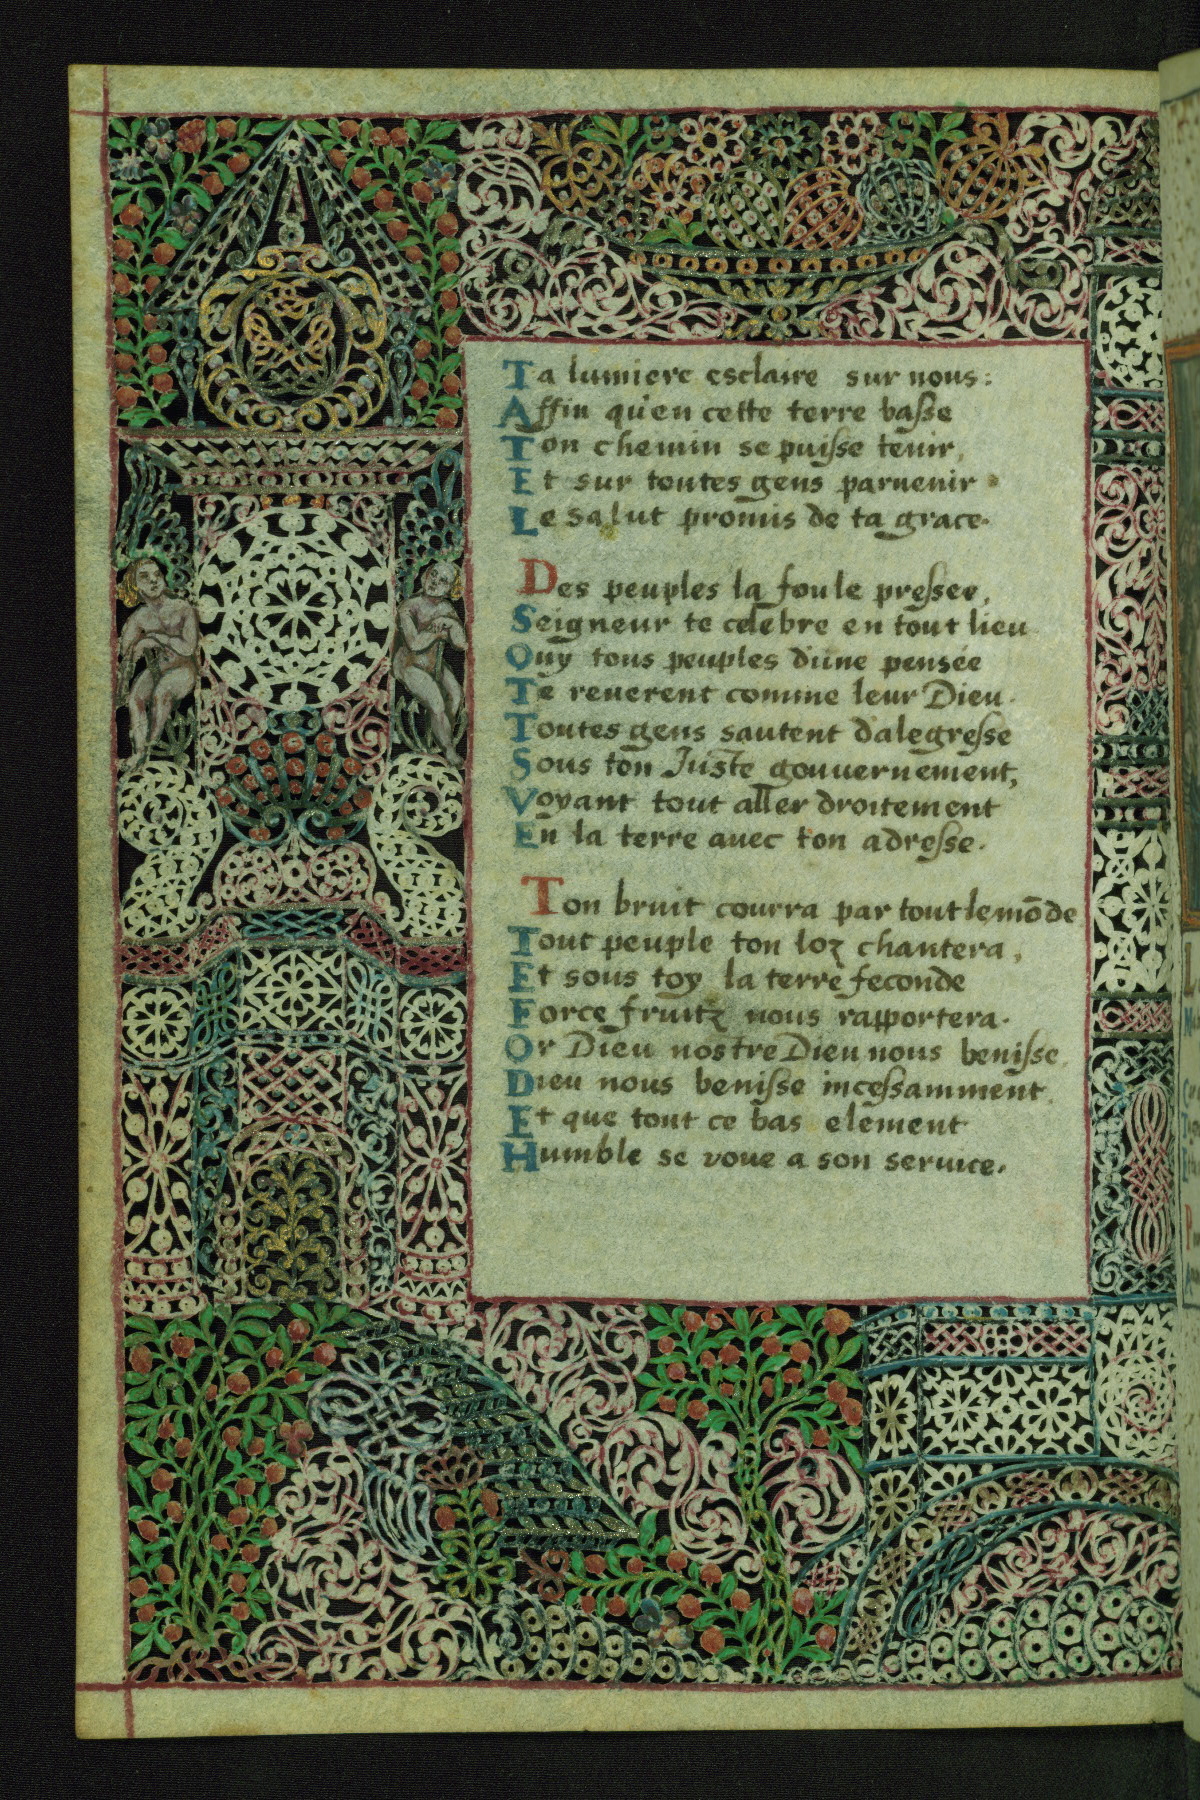 Ta lumiere esclaire sur nous:
Affin qu'en cette terre basse
Ton chemin se puisse tenir,
Et sur toutes gens paruenir
Le salut promis de ta grace.
Des peuples la foule pressee,
Seigneur te celebre en tout lieu
Ouy tous peuples d'une pensée
Te reuerent comme leur Dieu.
Toutes gens sautent d'alegresse
Sous ton Juste gouuernement,
Voyant tout aller droitement
En la terre auec ton adresse.
Ton bruit courra par tout le mōde
Tout peuple ton loz chantera,
Et sous toy la terre feconde
Force fruitz nous rapportera.
Or Dieu nostre Dieu nous benisse,
Dieu nous benisse incessamment,
Et que tout ce bas element
Humble se voue a son seruice.